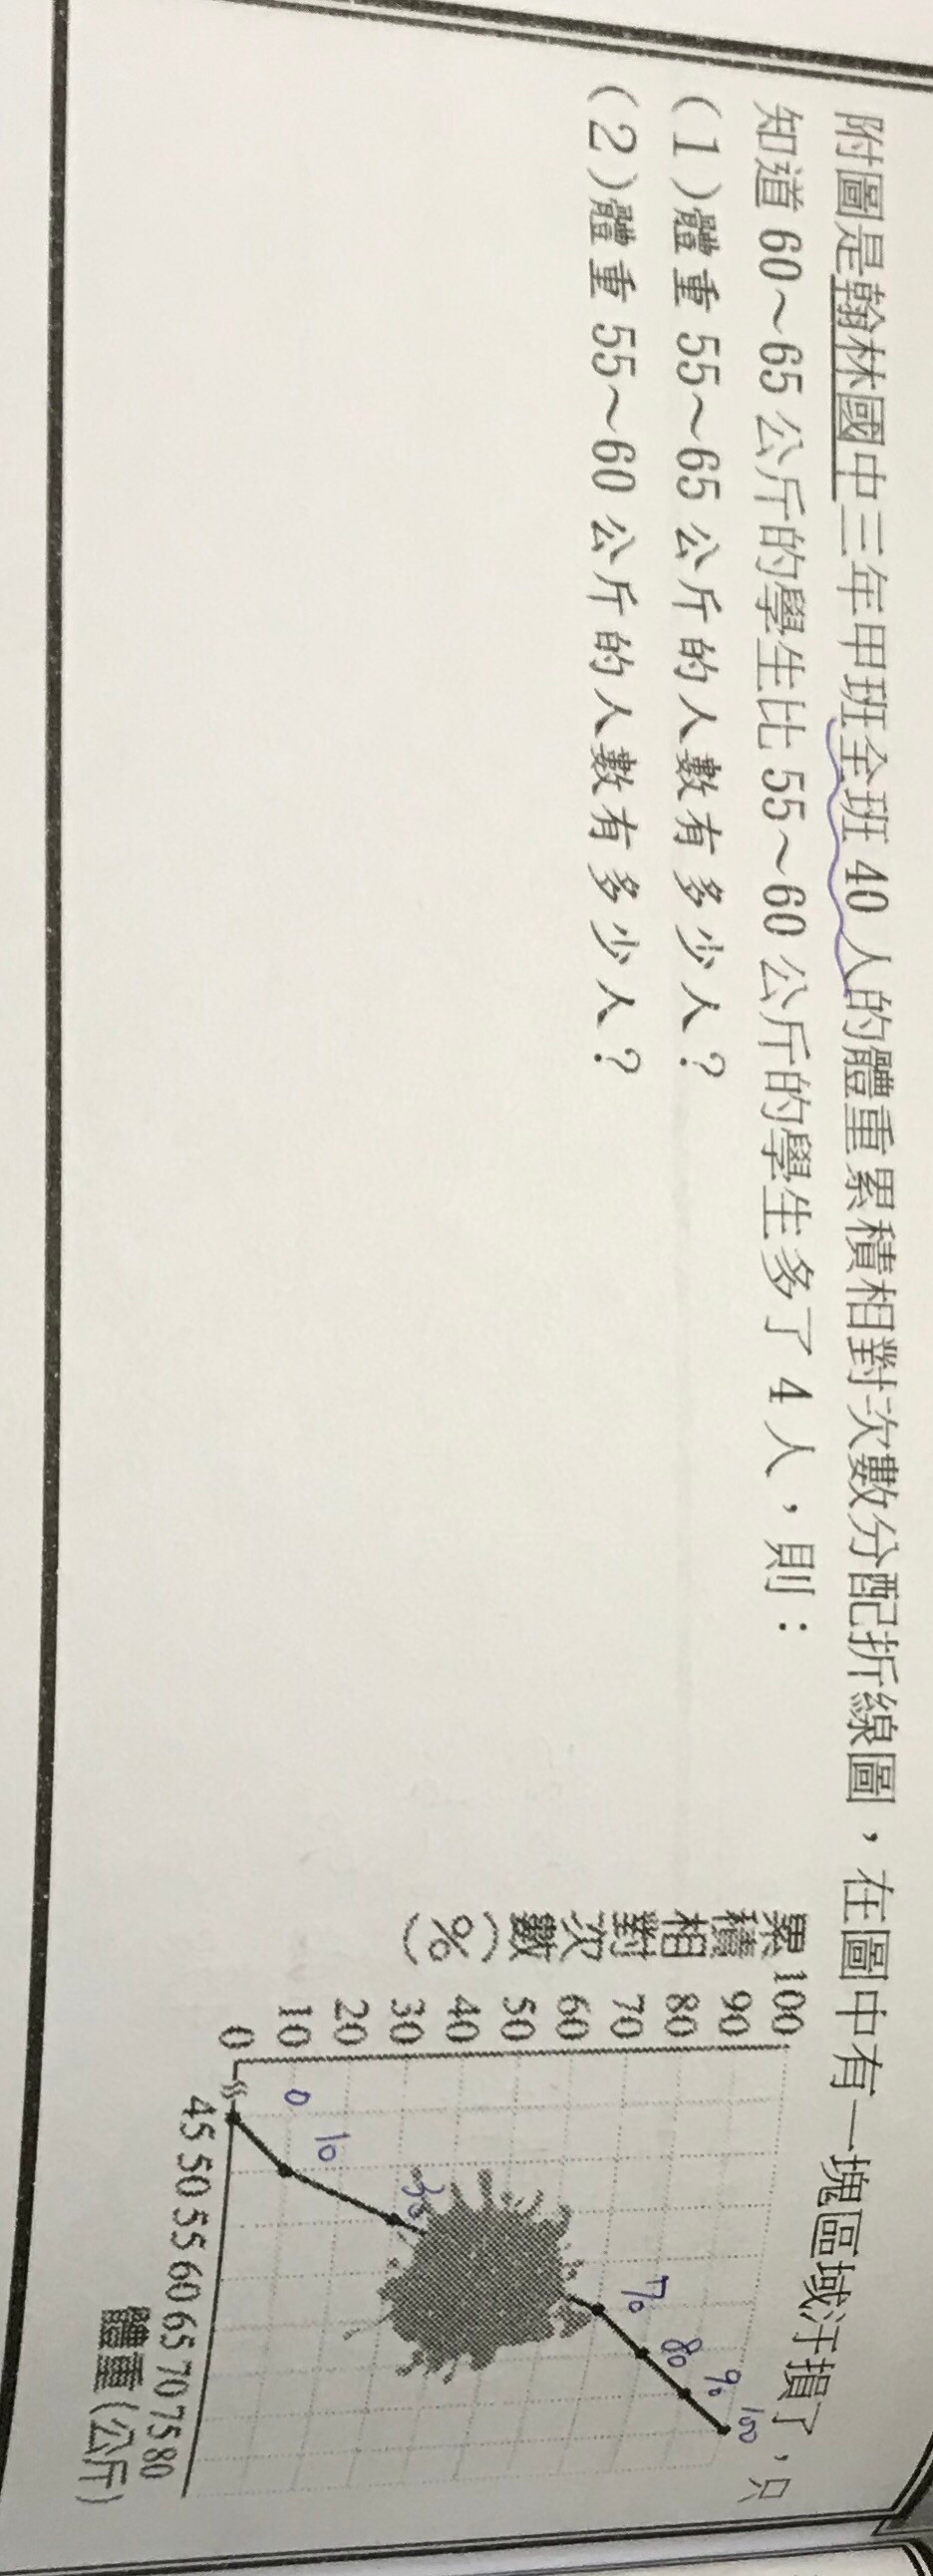 附圖是翰林國中三年甲班全班 40 人的體重累積相對次數分配折線圖，在圖中有一塊區域汙損了，只
知道 60～65 公斤的學生比 55～60 公斤的學生多了 4 人，則：
(1)體重 55～65 公斤的人數有多少人？
(2)體重 55～60 公斤的人數有多少人？
累積相對次數(%)
100
90
80
70
60
50
40
30
20
10
0
0
10
30
70
80
90
100
45 50 55 60 65 70 75 80
體重(公斤)